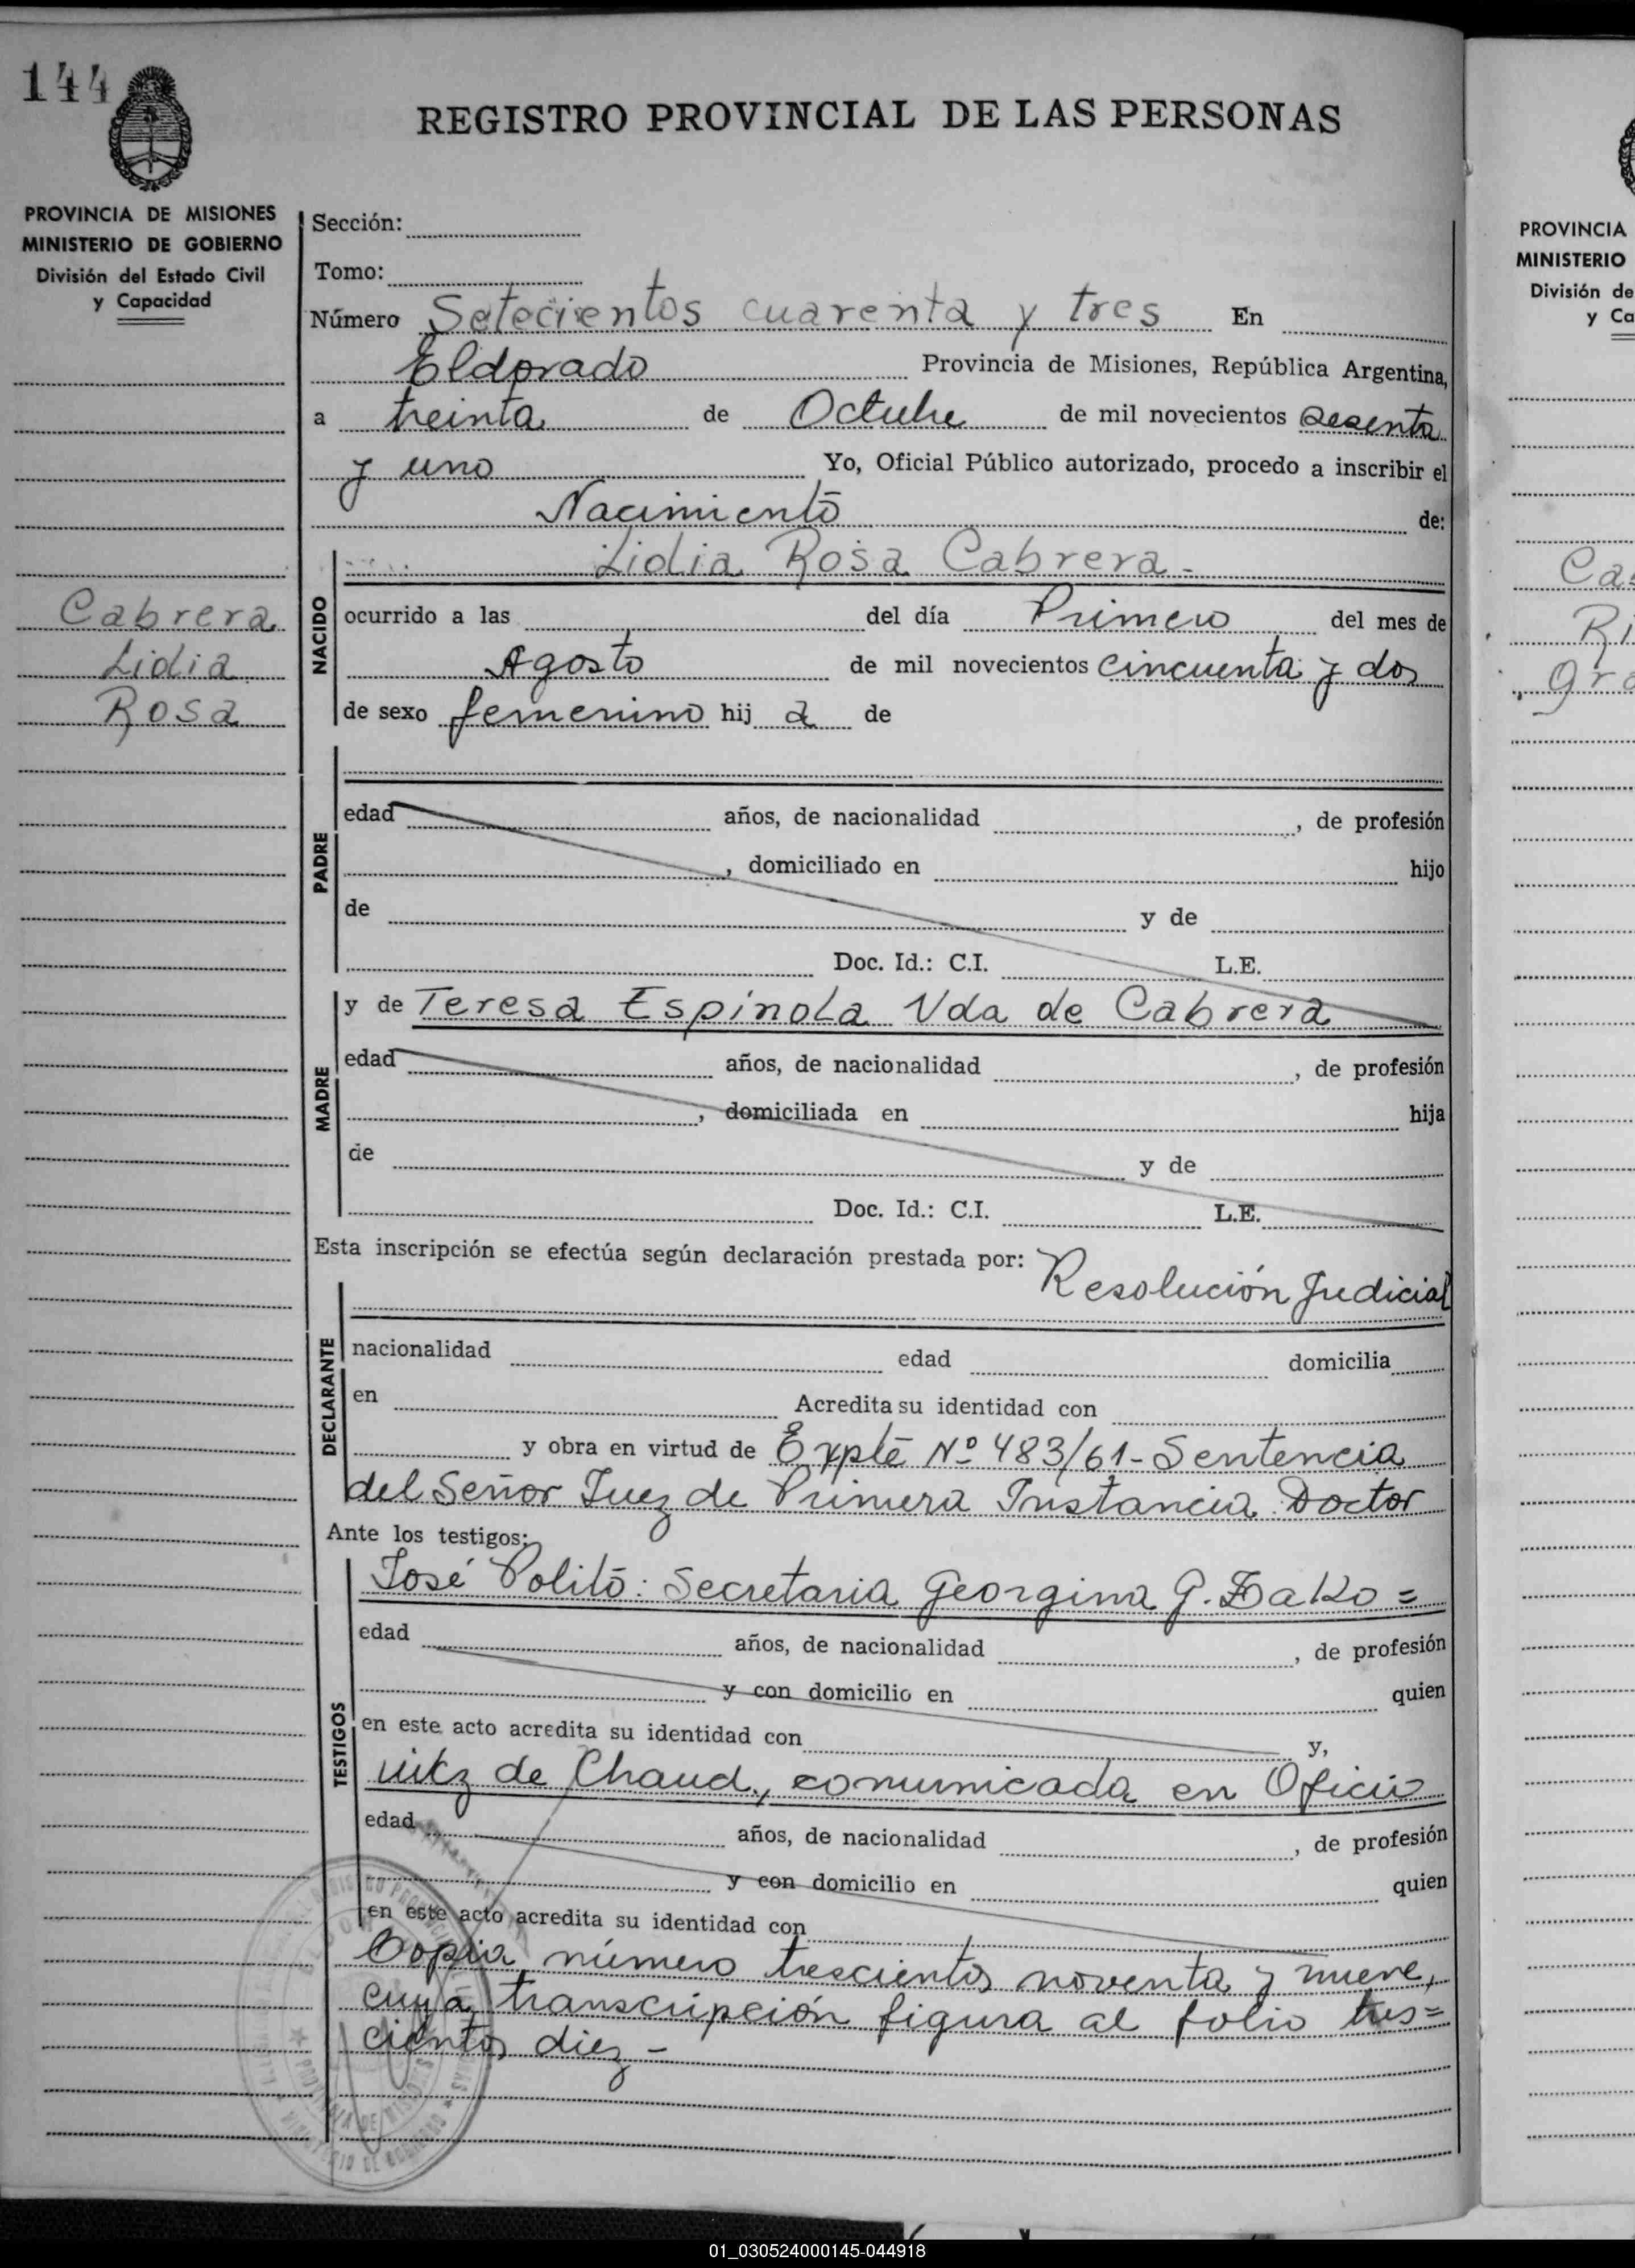 144
REGISTRO PROVINCIAL DE LAS PERSONAS
PROVINCIA DE MISIONES
MINISTERIO DE GOBIERNO
División del Estado Civil
y Capacidad
Cabrera
Lidia
Rosa
Sección:
Tomo:
Número Setecientos cuarenta y tres En
Eldorado Provincia de Misiones, República Argentina,
a treinta de Octubre de mil novecientos sesenta
y uno Yo, Oficial Público autorizado, procedo a inscribir el
Nacimiento de:
Lidia Rosa Cabrera -
NACIDO
ocurrido a las del día Primero del mes de
Agosto de mil novecientos cincuenta y dos
de sexo femenino hij a de
PADRE
edad años, de nacionalidad , de profesión
, domiciliado en hijo
de y de
Doc. Id.: C.I. L.E.
MADRE
y de Teresa Espínola Vda de Cabrera
edad años, de nacionalidad , de profesión
, domiciliada en hija
de y de
Doc. Id.: C.I. L.E.
Esta inscripción se efectúa según declaración prestada por:
Resolución Judicial
DECLARANTE
nacionalidad edad domicilia
en Acredita su identidad con
y obra en virtud de Expte Nº 483/61 - Sentencia
del Señor Juez de Primera Instancia Doctor
Ante los testigos:
José Polito: Secretaria Georgina G. =
TESTIGOS
edad años, de nacionalidad , de profesión
y con domicilio en quien
en este acto acredita su identidad con y,
de Chaud, comunicada en Oficio
edad años, de nacionalidad , de profesión
y con domicilio en quien
en este acto acredita su identidad con
Copia número trescientos noventa y nueve,
cuya transcripción figura al folio tres=
cientos diez -
PROVINCIA
MINISTERIO
División de
y Ca
01_030524000145-044918